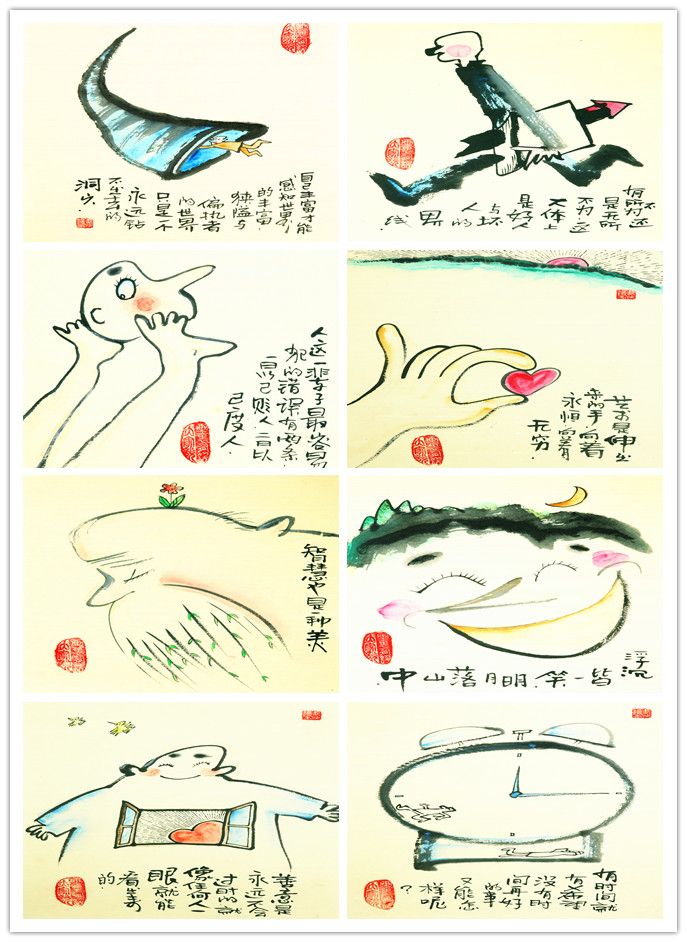 自己丰富才能
感知世界
的丰富
狭隘与
偏执者
的世界
只是一个
永远钻
不出去的
洞穴
有所不为还
是无所
不为,这
大体上
是好人
与坏
人的
界
线
人这一辈子最容易
犯的错误有两条
一曰以己贬人一曰以
己度人.
艺术是伸出
来的手,向着
永恒向着
无穷.
智慧也是一种美
浮沉
皆一笑.明月落山中.
善意是
永远不会
过时的就
像任何人一
眼就能
看出来
的.
有时间就
有希望
没有时
间再好
的事
又能怎
样呢
?